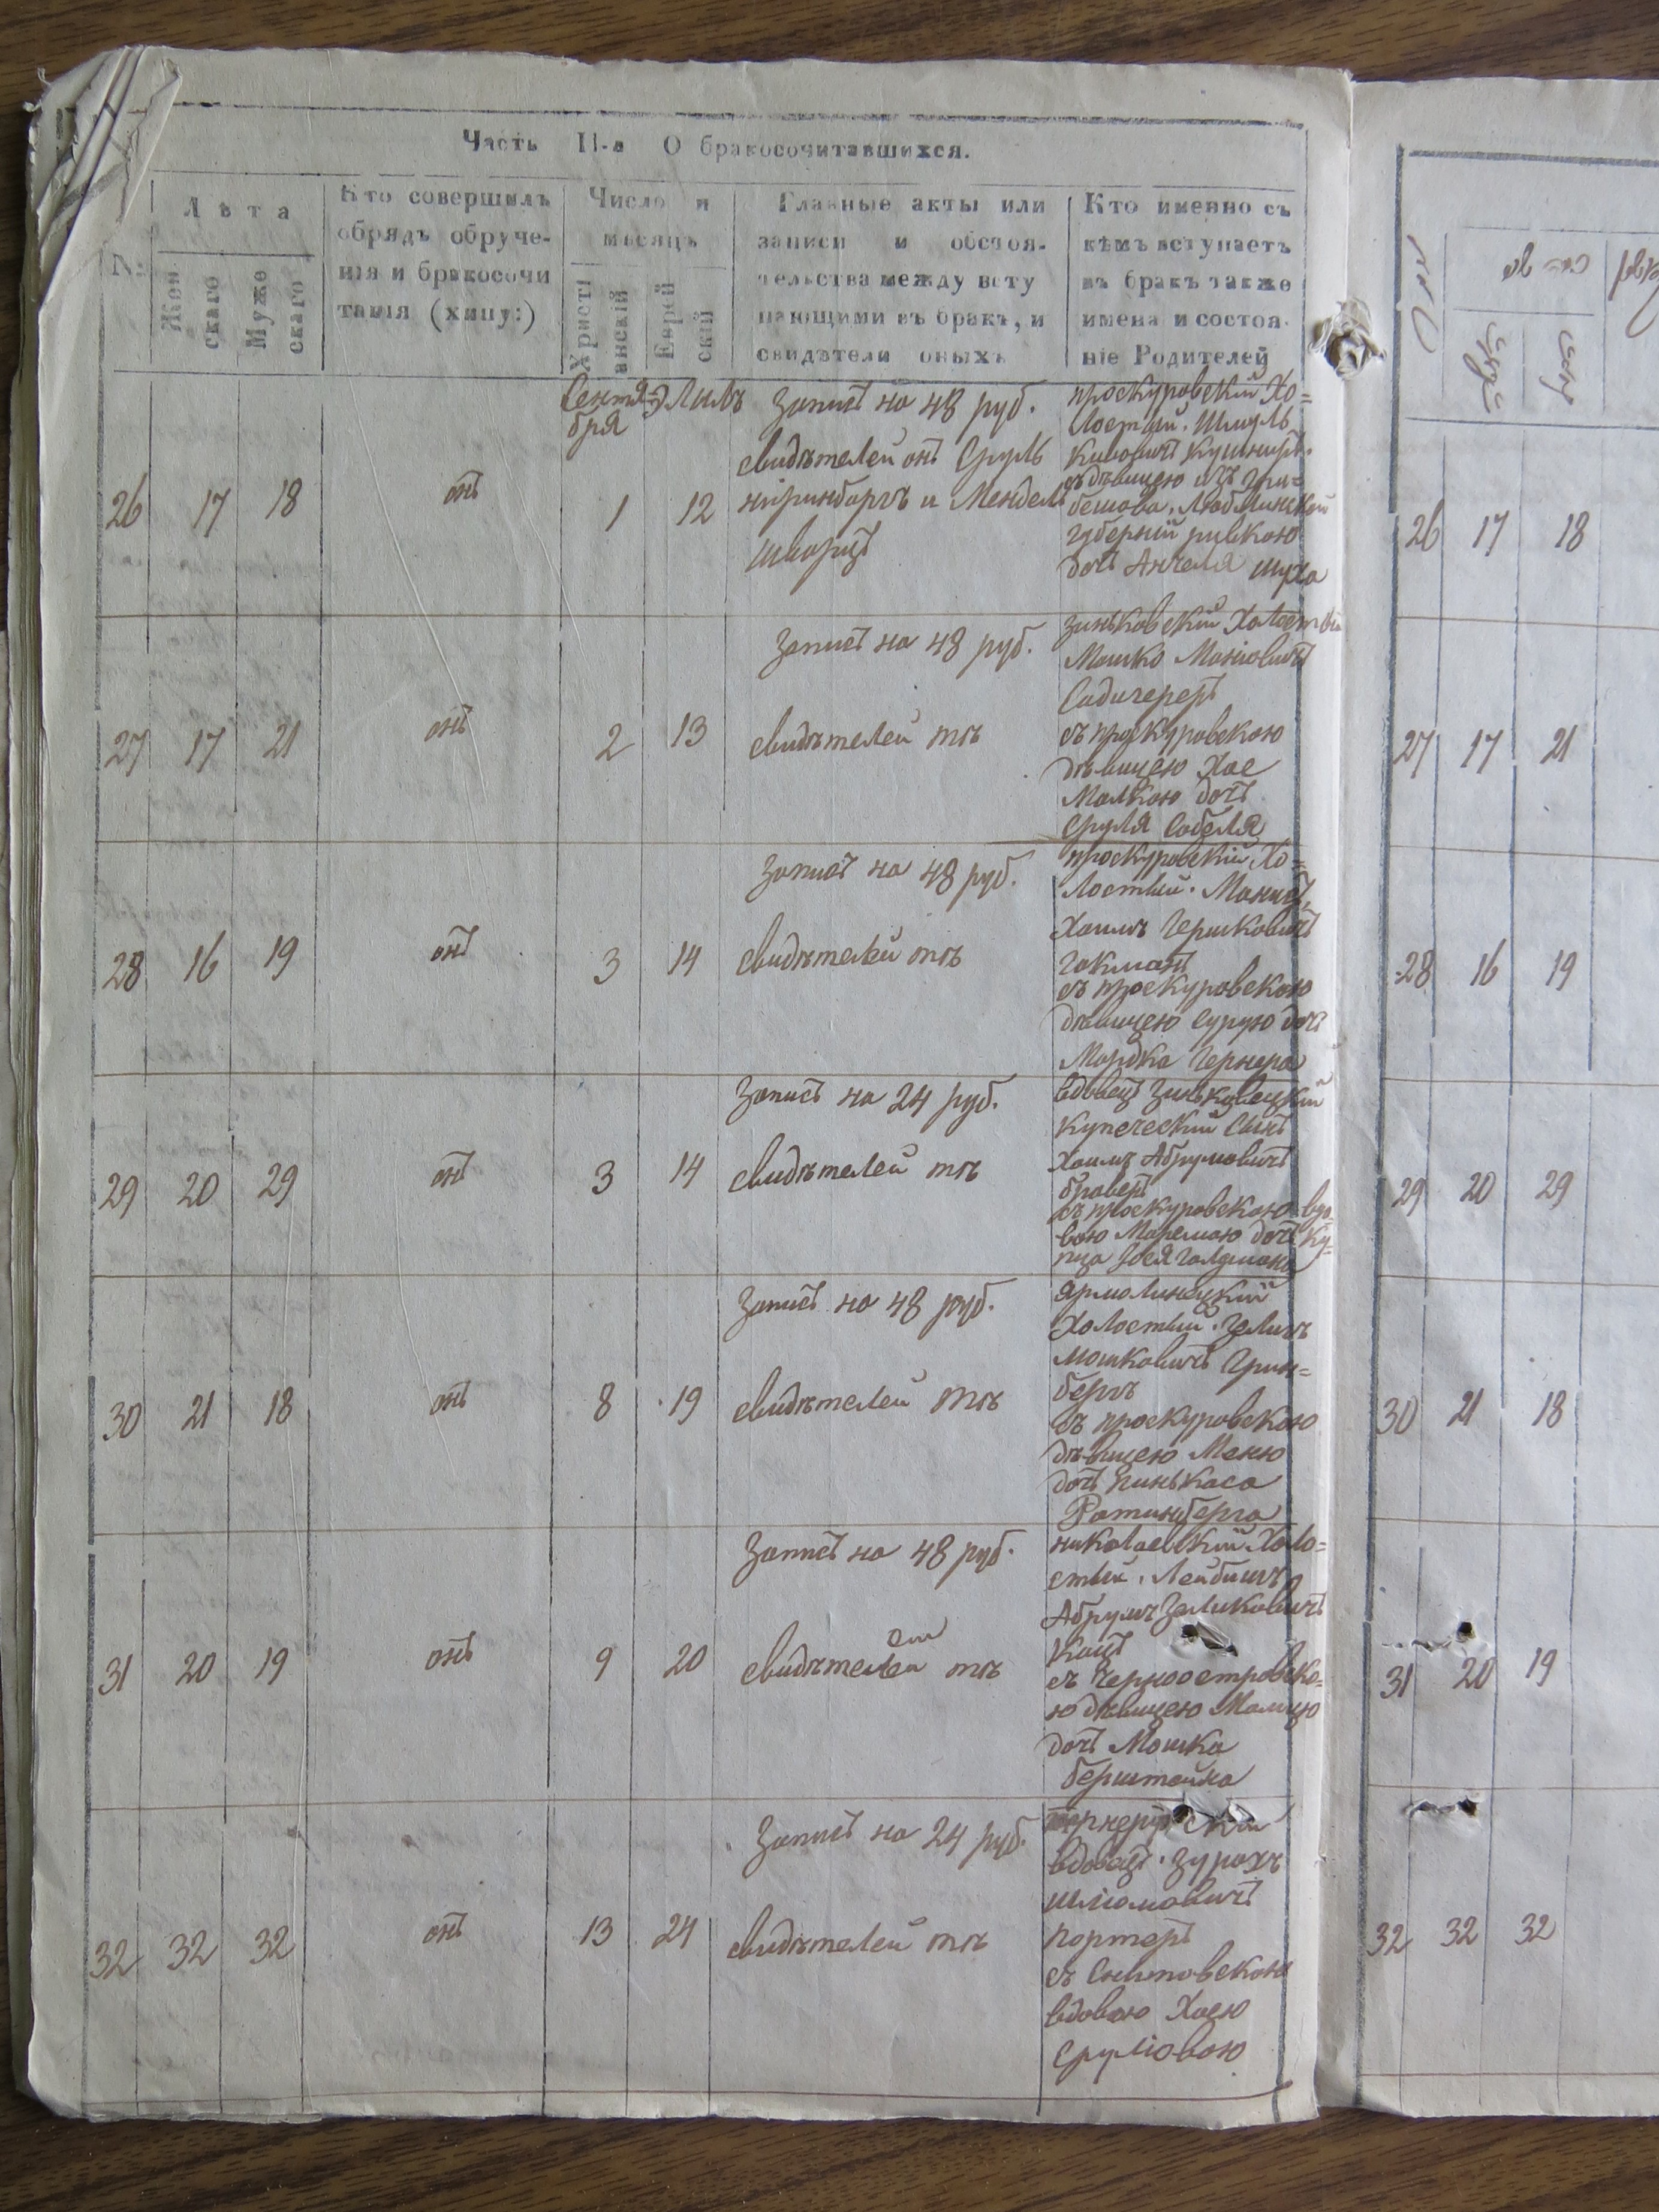 Часть II-я О бракосочитавшихся.
№
Лѣта
Жен
скаго
Муже
скаго
Кто совершилъ
обрядъ обруче-
нія и бракосочи
танія (хипу:)
Число и
мѣсяцъ
Христі
анскій
Еврей
скій
Главные акты или
записи и обстоя-
тельства между всту
пающими въ бракъ, и
свидѣтели оныхъ
Кто именно съ
кѣмъ вступаетъ
въ бракъ также
имена и состоя-
ніе Родителей
Сентя-
бря
Элилъ
26 17 18 онъ 1 12
Запись на 48 руб.
свидѣтелей онъ Сруль
и Мендель
шварцъ
проскуровскій Хо=
лостый. Шмуль
Кивовичъ Кушниръ.
съ дѣвицею изъ Гри=
бешова. Люблинской
губерніи ривкою
дочь Анчеля
27 17 21 онъ 2 13
Запись на 48 руб.
свидѣтелей тѣ
зиньковскій Холостый
Мошко
съ проскуровскою
дѣвицею Хае
Малкою дочь
Сруля Собеля
28 16 19 онъ 3 14
Запись на 48 руб.
свидѣтелей тѣ
проскуровскій Хо=
лостый.
Хаимъ Гершковичъ
съ проскуровскою
дѣвицею Сурую дочь
Мордка Чернера
29 20 29 онъ 3 14
Запись на 24 руб.
свидѣтелей тѣ
вдовецъ зиньковецкій
Купеческій Сынъ
Хаимъ Абрумовичъ
броверъ
съ проскуровскою вдо=
вою дочь Ку=
пца
30 21 18 онъ 8 19
Запись на 48 руб.
свидѣтелей тѣ
Ярмолинецкій
Холостый.
мошковичъ Грин=
бергъ
съ проскуровскою
дѣвицею Меню
дочь пинькаса
Ратинберга
31 20 19 онъ 9 20
Запись на 48 руб.
свидѣтелей тѣ
николаевскій Холо=
стый. Лейбишъ
Абрумъ Зеликовичъ
Кацъ
съ Черноостровско=
ю дѣвицею
дочь Мошка
берштейна
32 32 32 онъ 13 24
Запись на 24 руб.
свидѣтелей тѣ
вдовецъ. зурахъ
шлюмовичъ
портеръ
съ Снитовскою
вдовою Хаею
Сруліовою
26 17 18
27 17 21
28 16 19
29 20 29
30 21 18
31 20 19
32 32 32